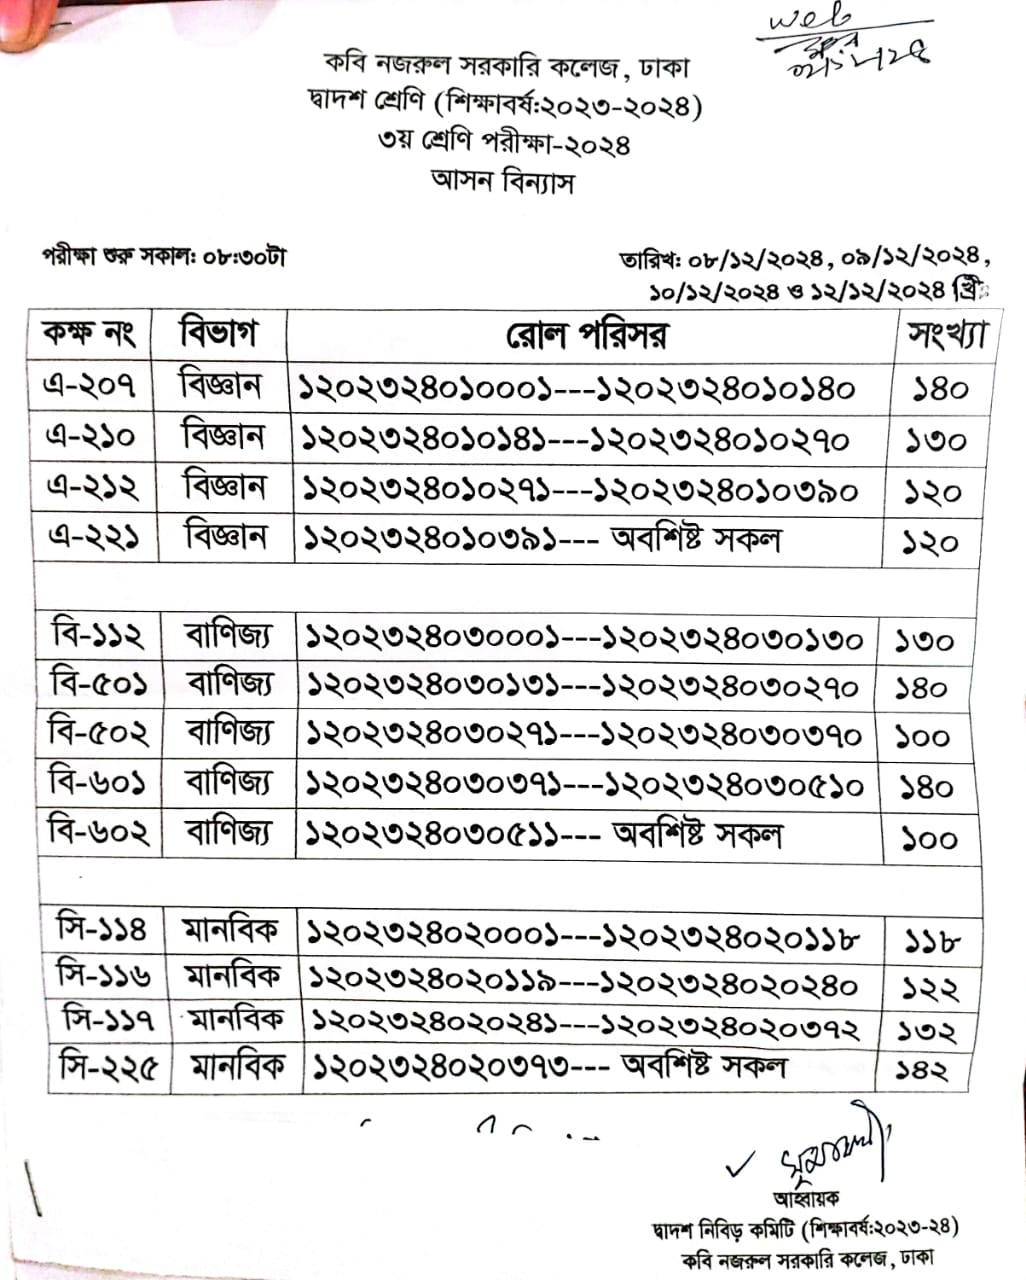 web
কবি নজরুল সরকারি কলেজ, ঢাকা
দ্বাদশ শ্রেণি (শিক্ষাবর্ষ:২০২৩-২০২৪)
৩য় শ্রেণি পরীক্ষা-২০২৪
আসন বিন্যাস
পরীক্ষা শুরু সকাল: ০৮:৩০টা
তারিখ: ০৮/১২/২০২৪, ০৯/১২/২০২৪,
১০/১২/২০২৪ ও ১২/১২/২০২৪ খ্রি:
কক্ষ নং বিভাগ রোল পরিসর সংখ্যা
এ-২০৭ বিজ্ঞান ১২০২৩২৪০১০০০১---১২০২৩২৪০১০১৪০ ১৪০
এ-২১০ বিজ্ঞান ১২০২৩২৪০১০১৪১---১২০২৩২৪০১০২৭০ ১৩০
এ-২১২ বিজ্ঞান ১২০২৩২৪০১০২৭১---১২০২৩২৪০১০৩৯০ ১২০
এ-২২১ বিজ্ঞান ১২০২৩২৪০১০৩৯১--- অবশিষ্ট সকল ১২০
বি-১১২ বাণিজ্য ১২০২৩২৪০৩০০০১---১২০২৩২৪০৩০১৩০ ১৩০
বি-৫০১ বাণিজ্য ১২০২৩২৪০৩০১৩১---১২০২৩২৪০৩০২৭০ ১৪০
বি-৫০২ বাণিজ্য ১২০২৩২৪০৩০২৭১---১২০২৩২৪০৩০৩৭০ ১০০
বি-৬০১ বাণিজ্য ১২০২৩২৪০৩০৩৭১---১২০২৩২৪০৩০৫১০ ১৪০
বি-৬০২ বাণিজ্য ১২০২৩২৪০৩০৫১১--- অবশিষ্ট সকল ১০০
সি-১১৪ মানবিক ১২০২৩২৪০২০০০১---১২০২৩২৪০২০১১৮ ১১৮
সি-১১৬ মানবিক ১২০২৩২৪০২০১১৯---১২০২৩২৪০২০২৪০ ১২২
সি-১১৭ মানবিক ১২০২৩২৪০২০২৪১---১২০২৩২৪০২০৩৭২ ১৩২
সি-২২৫ মানবিক ১২০২৩২৪০২০৩৭৩--- অবশিষ্ট সকল ১৪২
আহ্বায়ক
দ্বাদশ নিবিড় কমিটি (শিক্ষাবর্ষ:২০২৩-২৪)
কবি নজরুল সরকারি কলেজ, ঢাকা